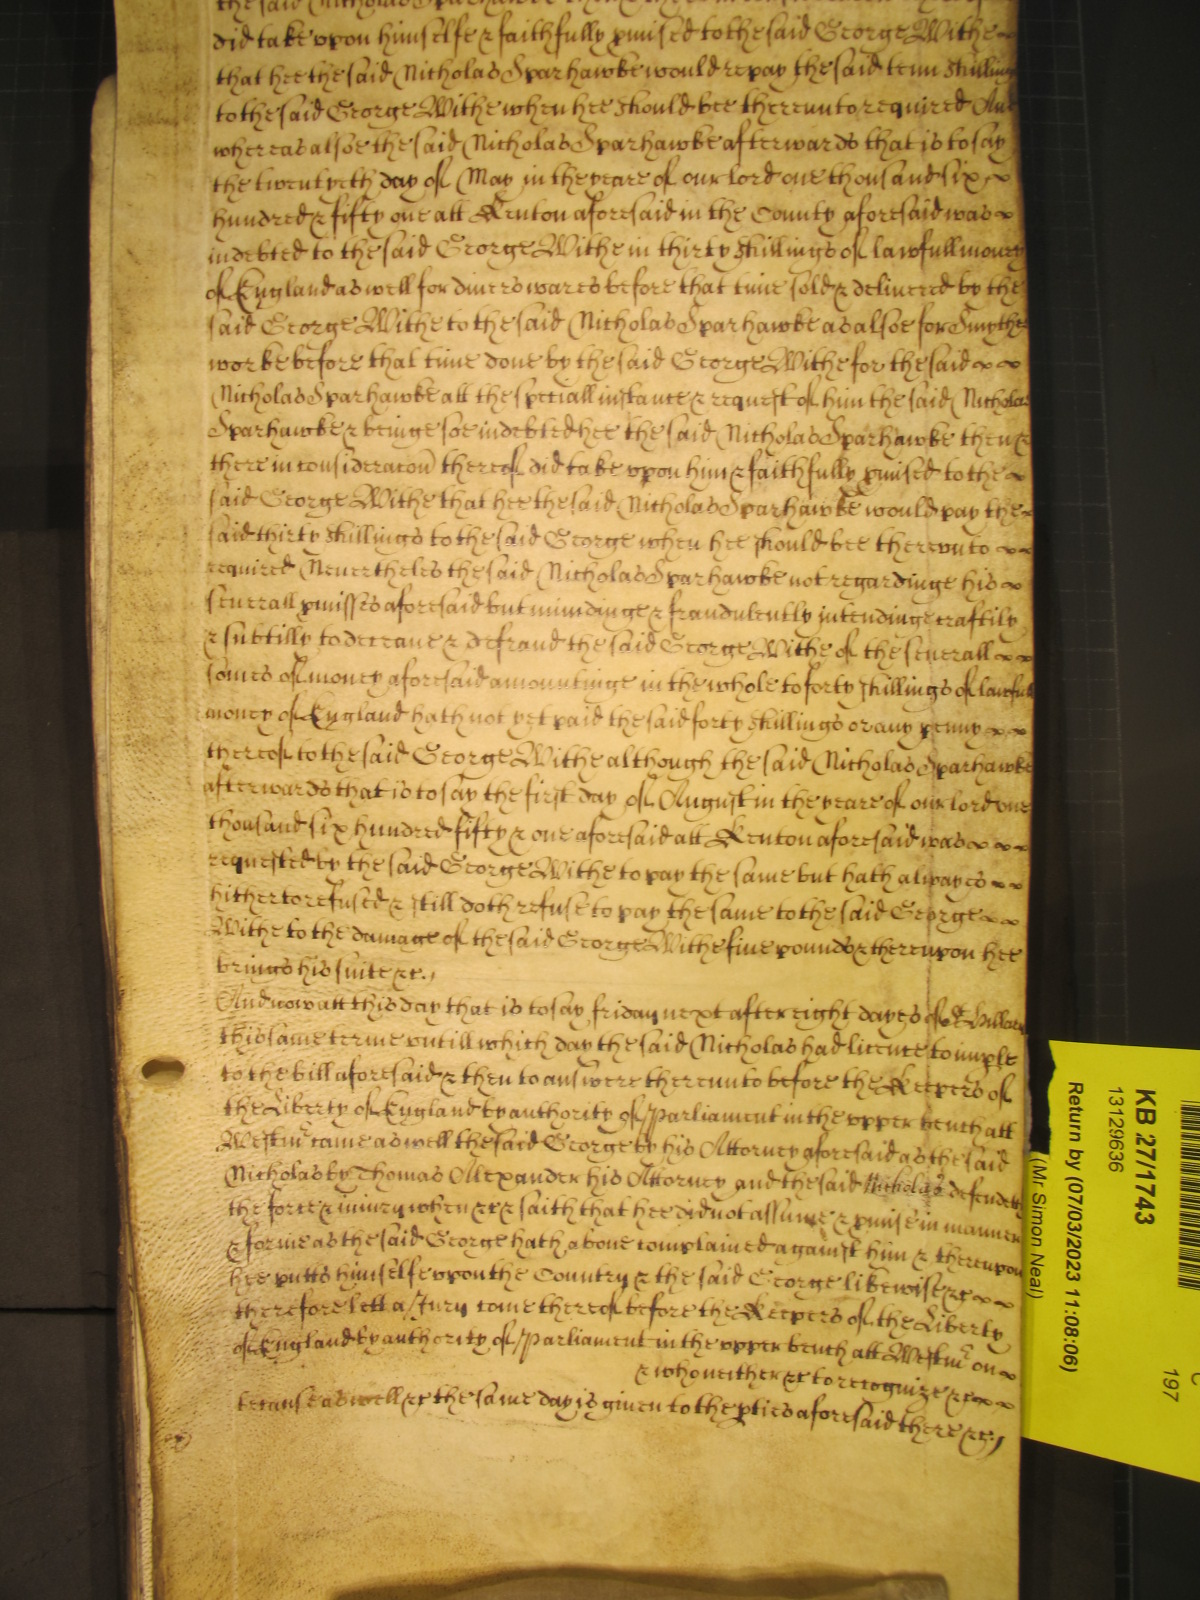 the said Nicholas Sparhawke
did take vpon himselfe & faithfully pmised to the said George Withe
that hee the said Nicholas Sparhawke would repay the said tenn shillings
to the said George Withe when hee should bee therevnto required And
whereas alsoe the said Nicholas Sparhawke afterwards that is to say
the twentyeth day of May in the yeare of our lord one thousand six
hundred & fifty one att Kenton aforesaid in the County aforesaid was
indebted to the said George Withe in thirty shillings of lawfull money
of England as well for divers wares before that time sold & delivered by the
said George Withe to the said Nicholas Sparhawke as alsoe for Smythe
worke before that time done by the said George Withe for the said
Nicholas Sparhawke att the speciall instance & request of him the said Nicholas
Sparhawke & beinge soe indebted hee the said Nicholas Sparhawke then &
there in consideracon thereof did take vpon him & faithfully pmised to the
said George Withe that hee the said Nicholas Sparhawke would pay the
said thirty shillings to the said George when hee should bee therevnto
required Nevertheles the said Nicholas Sparhawke not regardinge his
severall pmisses aforesaid but mindinge & fraudulently intendinge craftily
& subtilly to deceave & defraud the said George Withe of the severall
somes of money aforesaid amountinge in the whole to forty shillings of lawfull
money of England hath not yet paid the said forty shillings or any penny
thereof to the said George Withe although the said Nicholas Sparhawke
afterwards that is to say the first day of August in the yeare of our lord one
thousand six hundred fifty & one aforesaid att Kenton aforesaid was
requested by the said George Withe to pay the same but hath alwayes
hitherto refused & still doth refuse to pay the same to the said George
Withe to the damage of the said George Withe five pounds & therevpon hee
brings his suite &c.
And now att this day that is to say friday next after eight dayes of St Hillary
this same terme vntill which day the said Nicholas had licence to imple
to the bill aforesaid & then to answere therevnto before the Keepers of
the Liberty of England by authority of Parliament in the vpper bench att
Westmr came as well the said George by his Attorney aforesaid as the said
Nicholas by Thomas Alexander his Attorney and the said Nicholas defendeth
the force & iniury when &c & saith that hee did not assume & pmise in manner
& forme as the said George hath above complained against him & therevpon
hee putts himselfe vpon the Country & the said George likewise &c
therefore lett a Jury come thereof before the Keepers of the Liberty
of England by authority of Parliament in the vpper bench att Westmr on
& who neither &c to recognize &c
because as well &c the same day is given to the pties aforesaid there &c
KB 27/1743
13129636
Return by (07/03/2023 11:08:06)
(Mr Simon Neal)
197